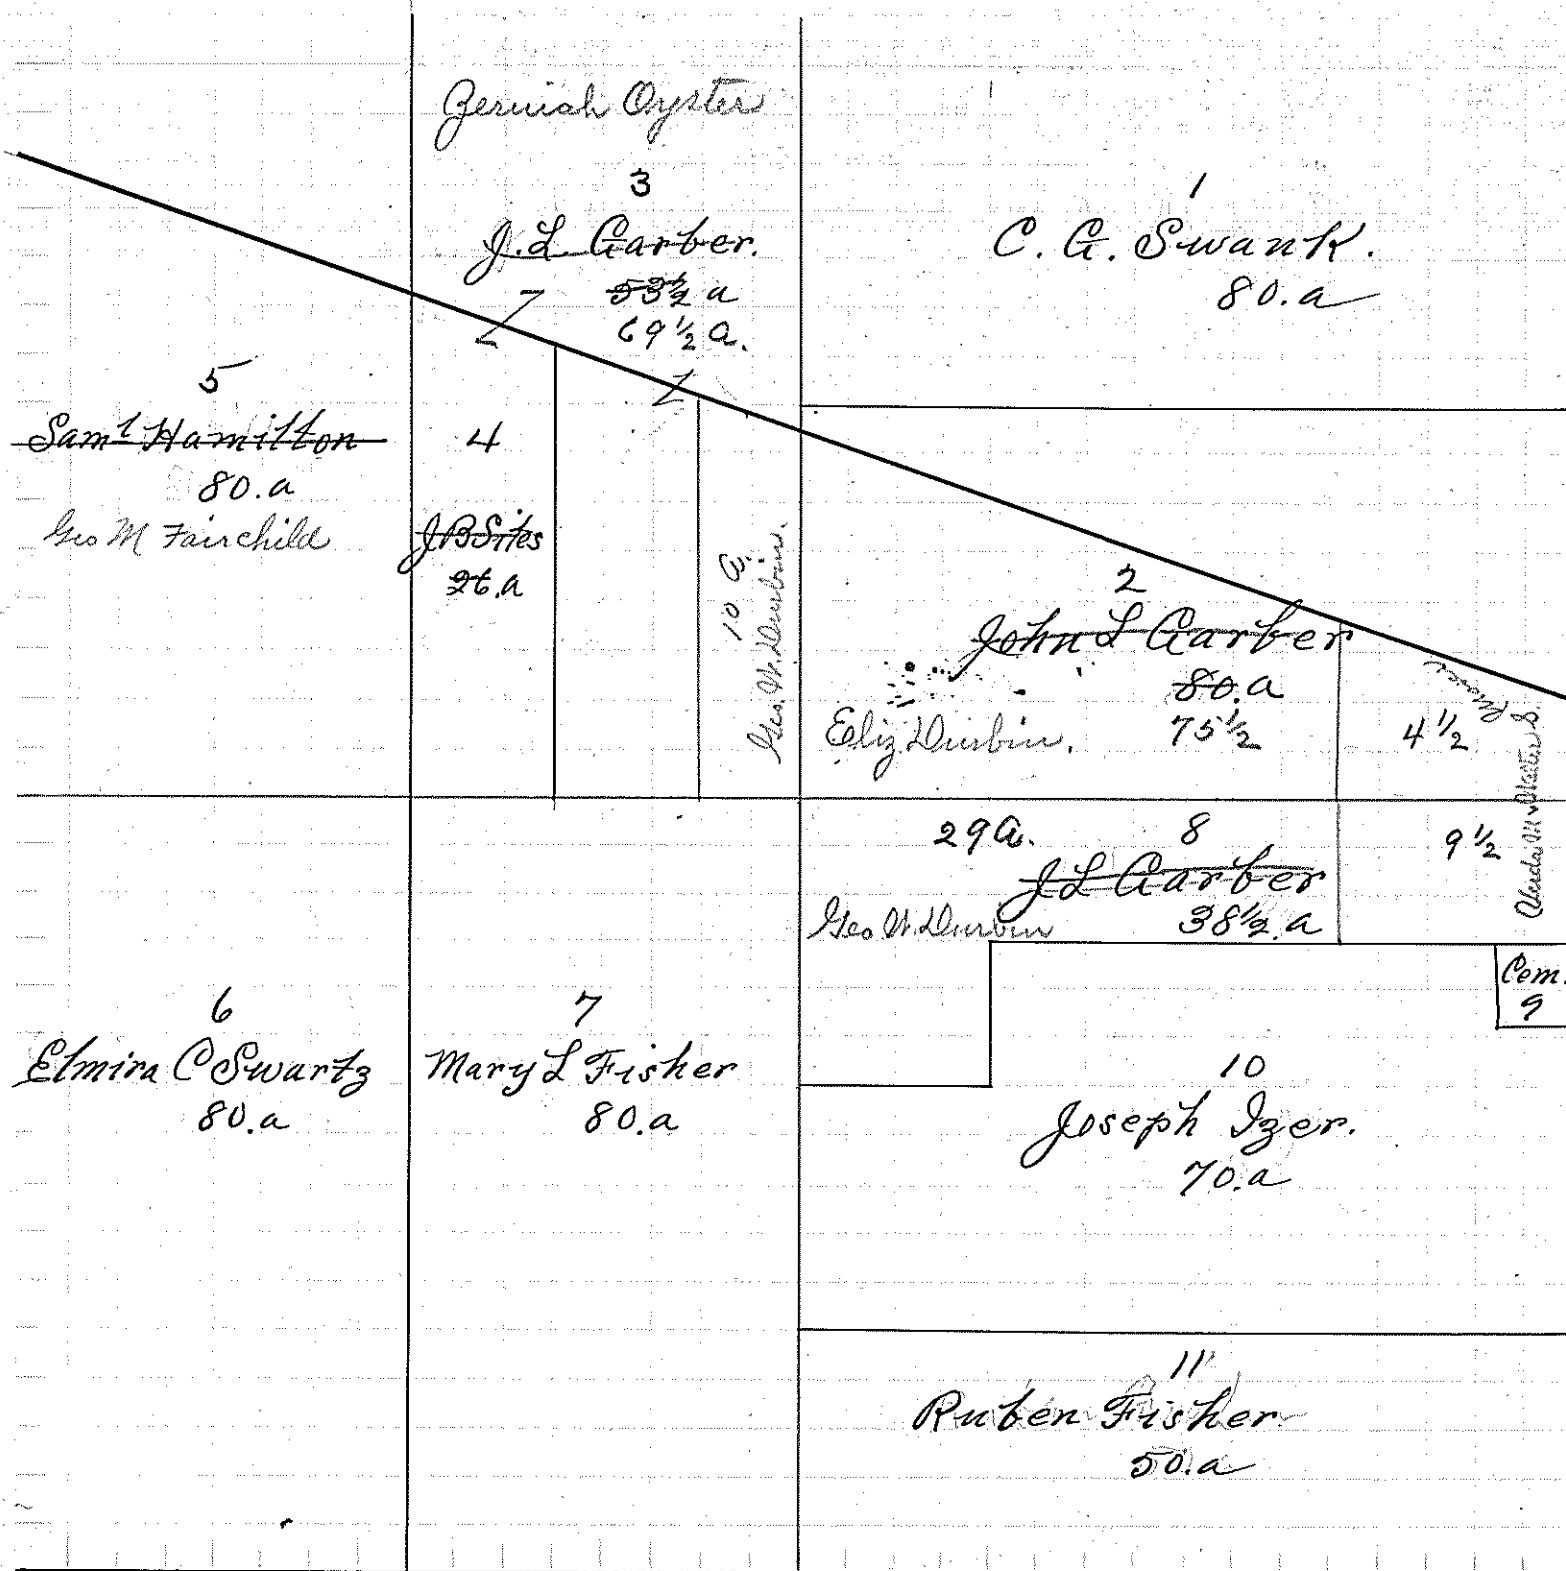 Oyster
3
J. L. Garber.
53½ a
69½ a.
1
C. G. Swank.
80.a
5
Saml Hamilton
80.a
Geo M Fairchild
4
J B Sites
26.a
10 a.
Geo. W. Durbin.
2
John L Garber
80.a
Eliz Durbin. 75½
4½
29 a. 8
J L Garber
Geo W. Durbin 38½.a
9½
Cem.
9
6
Elmira C Swartz
80.a
7
Mary L Fisher
80.a
10
Joseph Izer.
70.a
11
Ruben Fisher
50.a